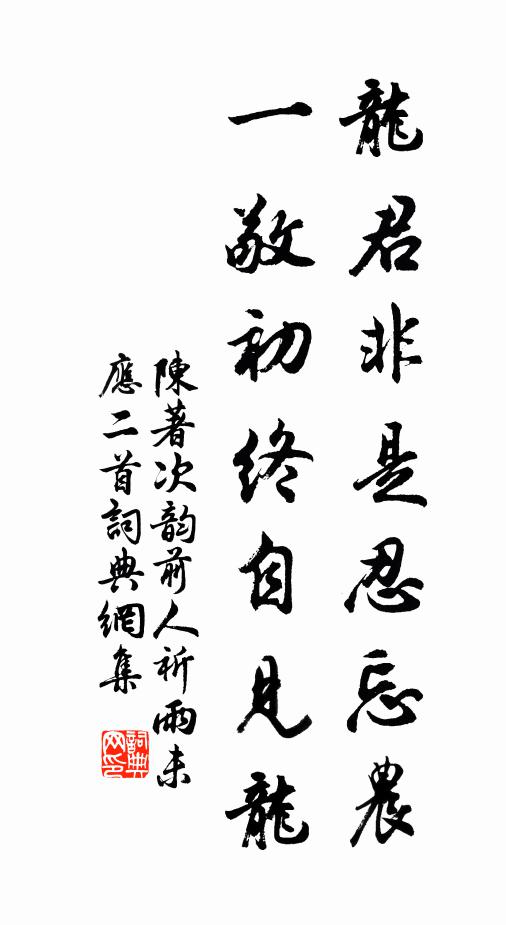 龍君非是忍忘農
一敬初終自見龍
陳著次韵前人祈雨未
應二首詞典網集
詞典
网印